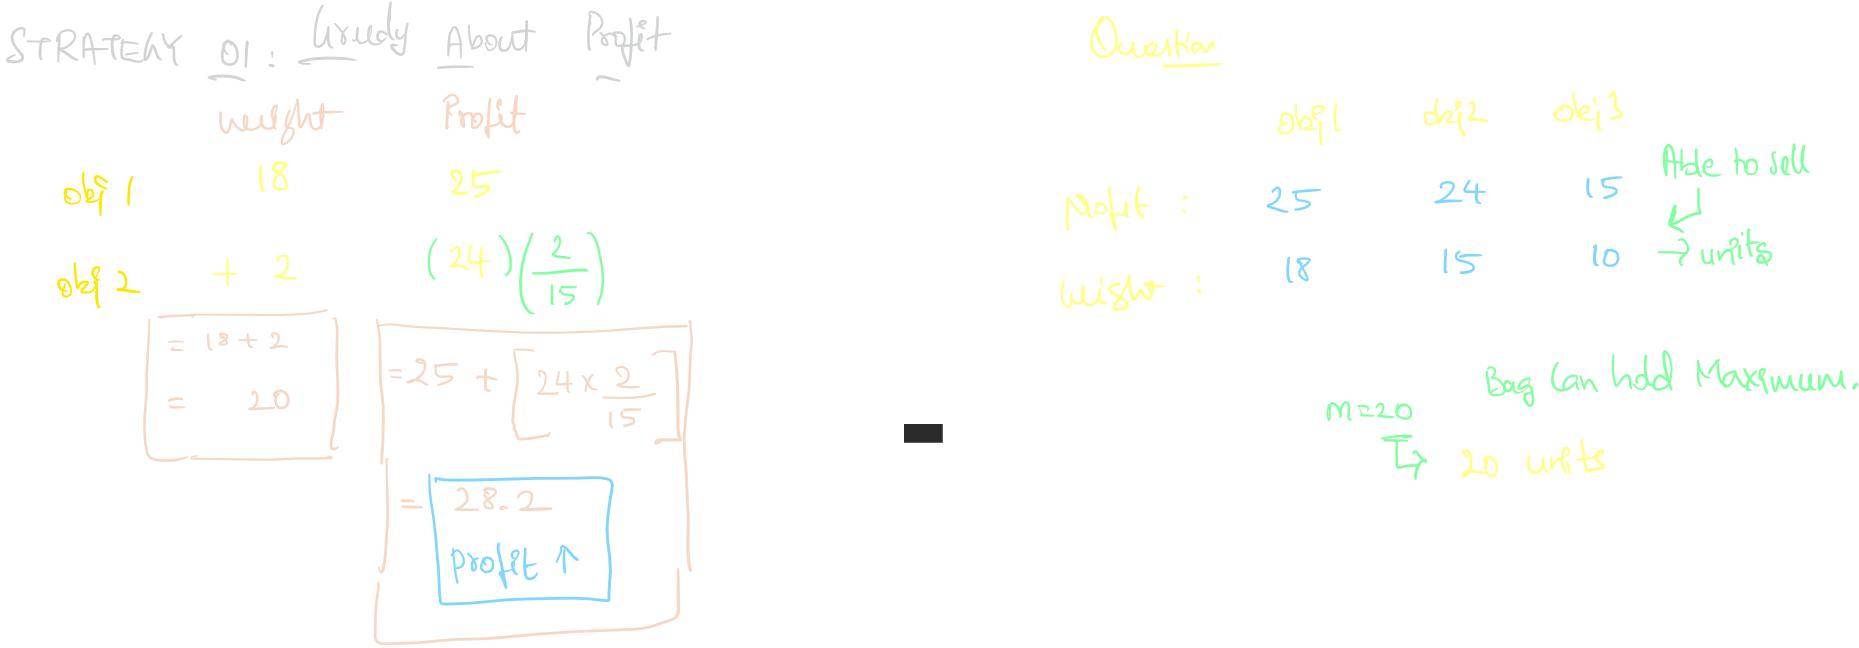 STRATEGY 01: Greedy About Profit
weight Profit
obj 1 18 25
obj 2 + 2 (24) (2/15)
= 18 + 2
= 20
= 25 + [24 × 2/15]
= 28.2
Profit ↑
Question
obj1 obj2 obj3
Profit : 25 24 15
Able to sell
weight : 18 15 10 → units
Bag Can hold Maximum.
m=20
↳ 20 units